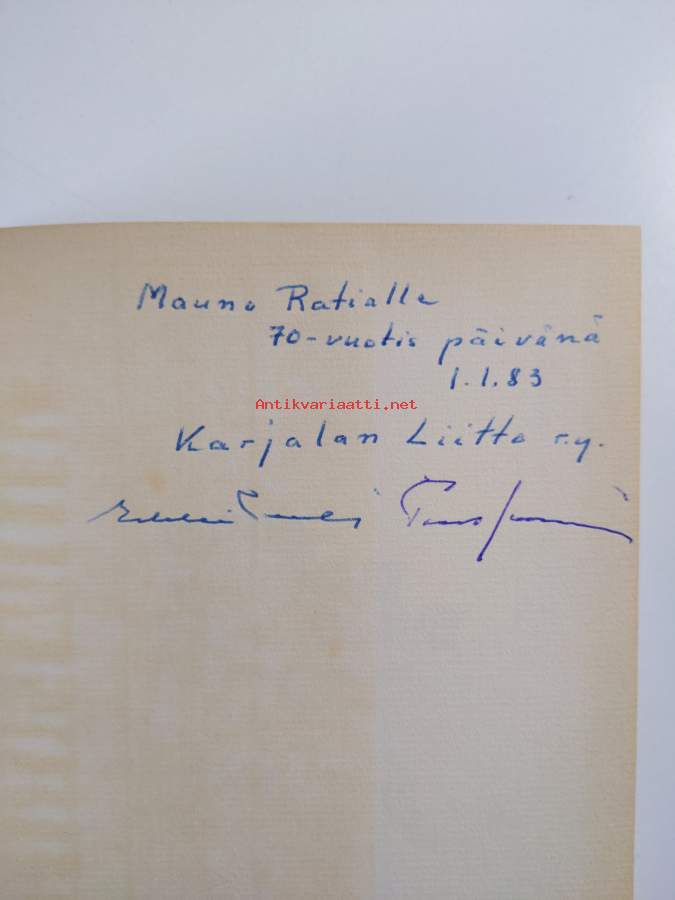 Mauno Ratialle
70-vuotis päivänä
1.1.83
Antikvariaatti.net
Karjalan Liitto r.y.